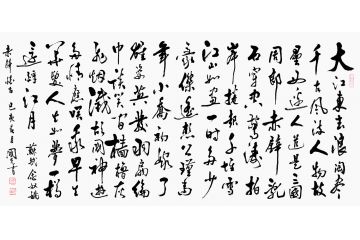 大江東去浪淘尽
千古風流人物故
壘西邊人道是三國
周郎赤壁亂
石穿空驚濤拍
岸捲起千堆雪
江山如畫一時多少
豪傑遙想公瑾當
年小喬初嫁了
雄姿英發羽扇綸
巾談笑間檣櫓灰
飛烟滅故國神遊
多情應笑我早生
華髮人生如夢一樽
還酹江月
蘇軾念奴嬌
赤壁懷古